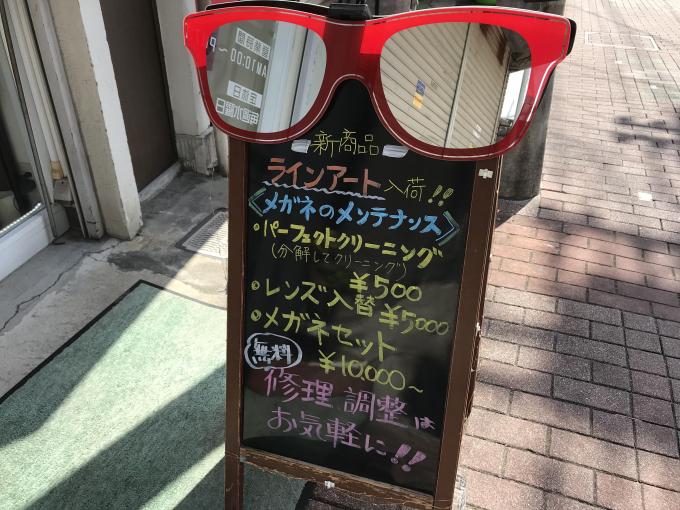 新商品
ラインアート入荷!!
〈メガネのメンテナンス〉
・パーフェクトクリーニング
(分解してクリーニング)
¥500
・レンズ入替¥5000
・メガネセット
¥10,000~
修理 調整は
お気軽に!!
営業時間
AM10:00
定休日
毎週水曜日